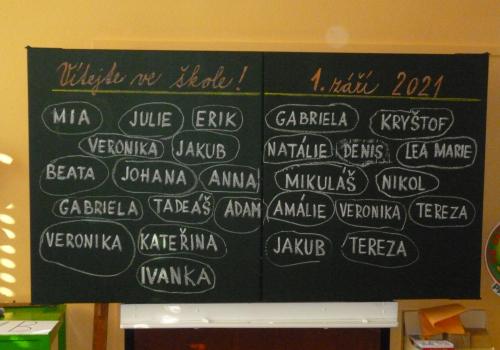 Vítejte ve škole!
MIA JULIE ERIK
VERONIKA JAKUB
BEATA JOHANA ANNA
GABRIELA TADEÁŠ ADAM
VERONIKA KATEŘINA
IVANKA
1. září 2021
GABRIELA KRYŠTOF
NATÁLIE DENIS LEA MARIE
MIKULÁŠ NIKOL
AMÁLIE VERONIKA TEREZA
JAKUB TEREZA